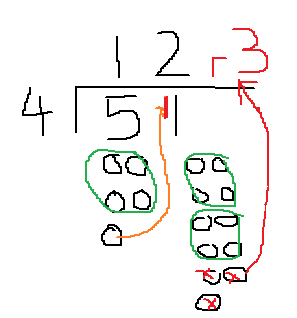 1 2 r3
4 5 11